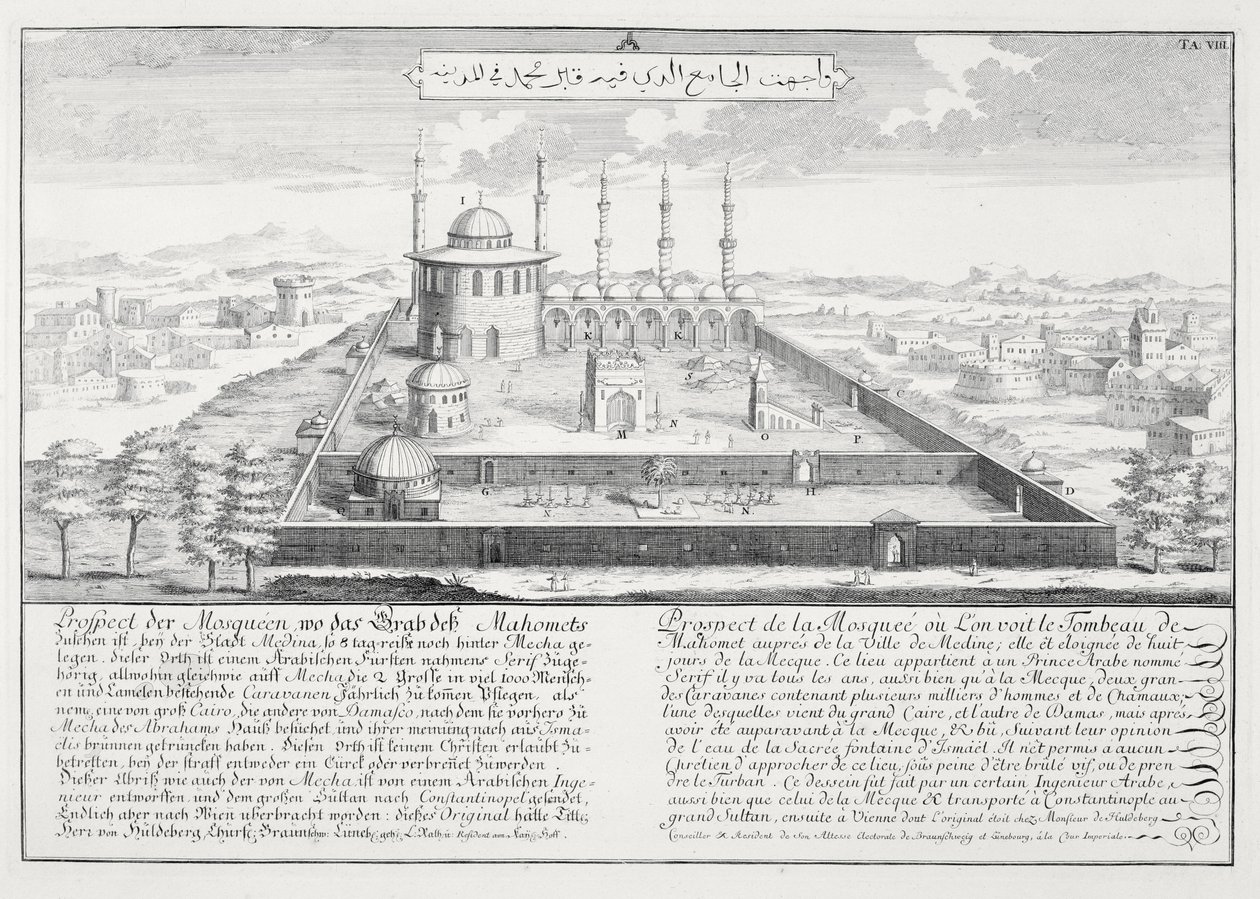 TA: VIII.
واجهت الجامع الدي فيه قابر محمد في المدينه
I
K K
S
C
M N O P
G H D
Q N N
Prospect der Mosquéen, wo das Grab deß Mahomets
Zusehen ist, beÿ der Stadt Medina, so 8 tag-reiße noch hinter Mecha ge-
legen. Dieser Orth ist einem Arabischen Fürsten nahmens Serif Zuge-
hörig, allwohin gleichwie auff Mecha die 2 Grosse in viel 1000 Mensch-
en und Camelen bestehende Caravanen Jährlich Zu kom̄en Pflegen, als
neml: eine von groß Cairo, die andere von Damasco, nach dem sie vorhero Zu
Mecha des Abrahams Hauß besuchet, und ihrer meinung nach aus Isma-
elis brunnen getruncken haben. Diesen Orth ist keinem Christen erlaubt Zu-
betretten, beÿ der straff entweder ein Türck oder verbreñet Zuwerden.
Dießer Abriß wie auch der von Mecha, ist von einem Arabischen Inge-
nieur entworffen, und dem großen Sultan nach Constantinopel gesendet,
Endlich aber nach Wien uberbracht worden: dießes Original hatte Titl:
Herr von Hüldeberg, Churfl: Braunschw: Lüneb: geh: L. Rath, u: Resident am Kaÿs: Hoff.
Prospect de la Mosqueé où L'on voit le Tombeau de
Mahomet auprés de la Ville de Medine; elle ét eloignée de huit
jours de la Mecque. Ce lieu appartient à un Prince Arabe nommé
Serif il y va tous les ans, aussi bien qu'à la Mecque, deux gran-
des Caravanes contenant plusieurs milliers d'hommes et de Chamaux;
l'une desquelles vient du grand Caire, et l'autre de Damas, mais aprés
avoir été auparavant à la Mecque, & bû, Suivant leur opinion
de l'eau de la Sacrée fontaine d'Ismaël. Il n'ét permis à aucun
Chrétien d'approcher de ce lieu, soûs peine d'être brûlé vif, ou de pren
dre le Turban. Ce dessein fut fait par un certain Ingenieur Arabe,
aussi bien que celui de la Mecque & transporté à Constantinople au
grand Sultan, ensuite à Vienne dont L'original étoit chez Monsieur de Huldeberg
Conseiller & Resident de Son Altesse Electorale de Braunschweig et Lünebourg, à la Cour Imperiale.